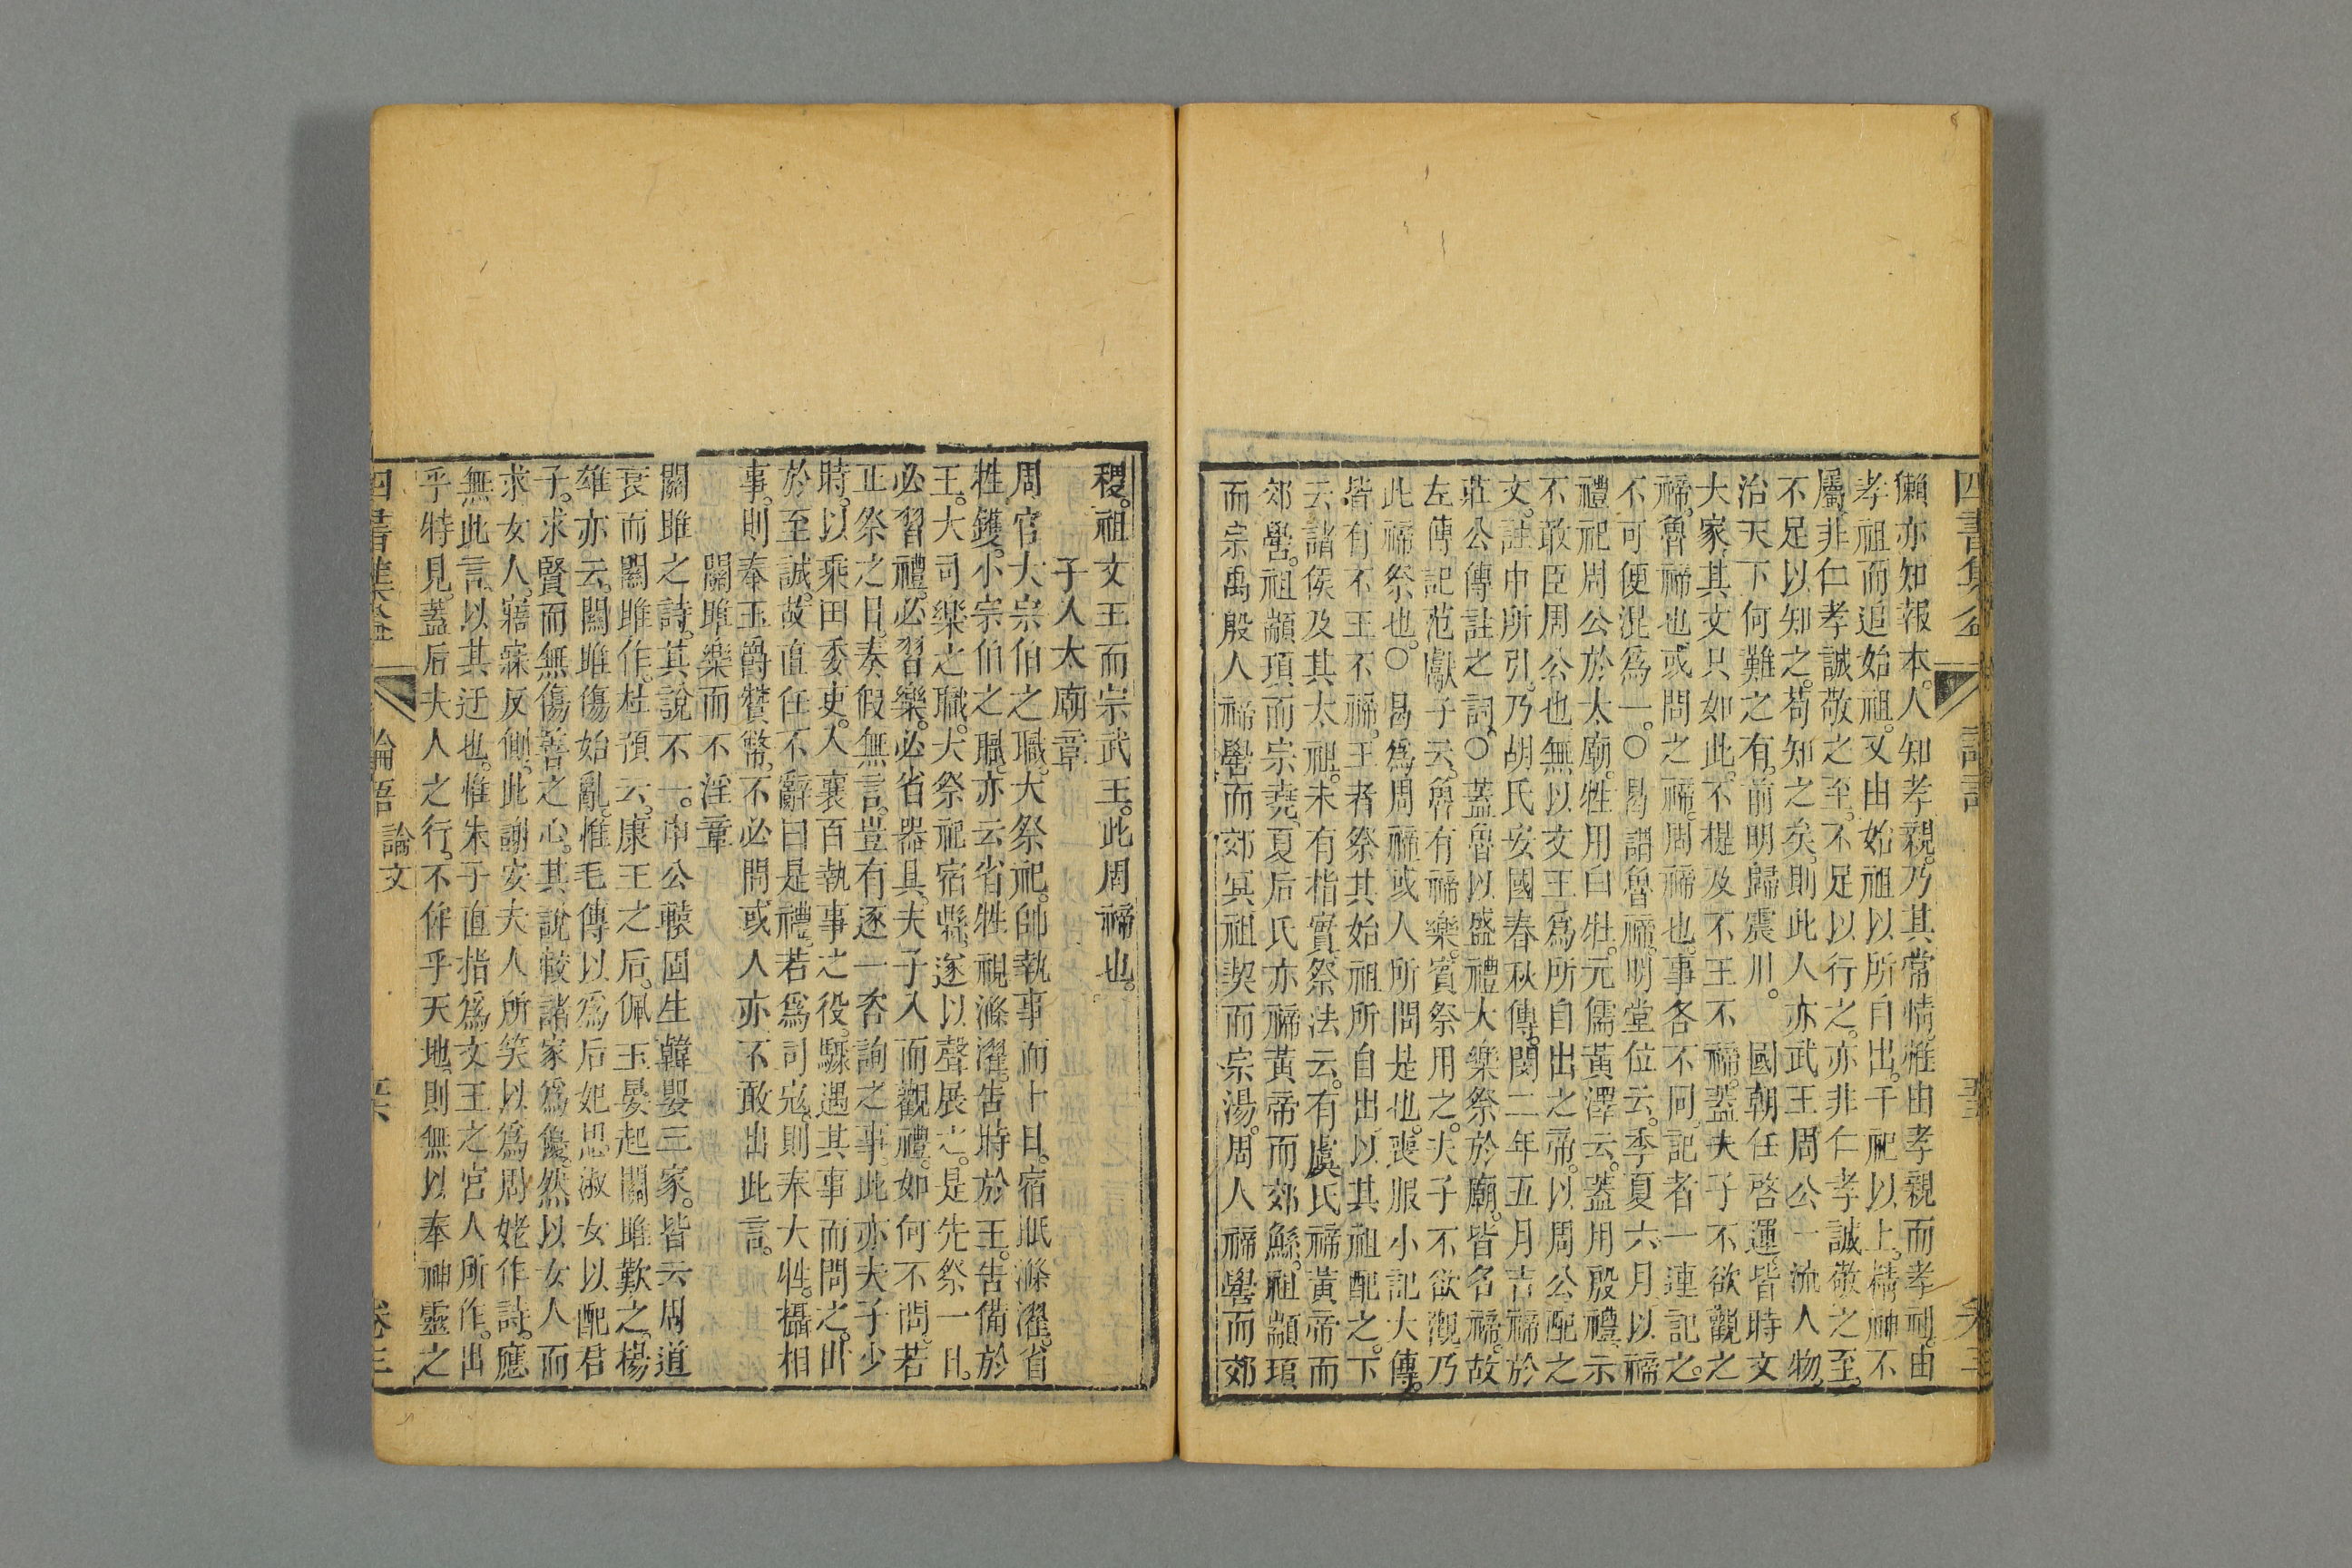 獺亦知報本人知孝親乃其常情惟由孝親而孝祖由
孝祖而追始祖又由始祖以所自出干祀以上精神不
屬非仁孝誠敬之至不足以行之亦非仁孝誠敬之至
不足以知之苟知之矣則此人亦武王周公一流人物
治天下何難之有前明歸震川 國朝任啓運皆時文
大家其文只如此不提及不王不禘蓋夫子不欲觀之
禘魯禘也或問之禘周禘也事各不同記者一連記之
不可便混爲一○曷謂魯禘明堂位云季夏六月以禘
禮祀周公於太廟牲用白牡元儒黃澤云蓋用殷禮示
不敢臣周公也無以文王爲所自出之帝以周公配之
文註中所引乃胡氏安國春秋傳閔二年五月吉禘於
莊公傳註之詞○蓋魯以盛禮大樂祭於廟皆名禘故
左傳記范獻子云魯有禘樂賓祭用之夫子不欲觀乃
此禘祭也○曷爲周禘或人所問是也喪服小記大傳
皆有不王不禘王者祭其始祖所自出以其祖配之下
云諸侯及其太祖未有指實祭法云有虞氏禘黃帝而
郊嚳祖顓頊而宗堯夏后氏亦禘黃帝而郊鯀祖顓頊
而宗禹殷人禘嚳而郊冥祖契而宗湯周人禘嚳而郊
稷祖文王而宗武王此周禘也
子入太廟章
周官大宗伯之職大祭祀帥執事而卜日宿眡滌濯省
牲鑊小宗伯之職亦云省牲視滌濯告時於王告備於
王大司樂之職大祭祀宿縣遂以聲展之是先祭一日
必習禮必習樂必省器具夫子入而觀禮如何不問若
正祭之日奏假無言豈有逐一咨詢之事此亦夫子少
時以乘田委吏人襄百執事之役驟遇其事而問之出
於至誠故直任不辭曰是禮若爲司寇則奉大牲攝相
事則奉玉爵贊幣不必問或人亦不敢出此言
關雎樂而不淫章
關雎之詩其說不一申公轅固生韓嬰三家皆云周道
衰而關雎作杜預云康王之后佩玉晏起關雎歎之楊
雄亦云關雎傷始亂惟毛傳以爲后妃思淑女以配君
子求賢而無傷善之心其說較諸家爲優然以女人而
求女人寤寐反側此謝安夫人所笑以爲周姥作詩應
無此言以其迂也惟朱子直指爲文王之宮人所作出
乎特見蓋后夫人之行不侔乎天地則無以奉神靈之
論語 論文